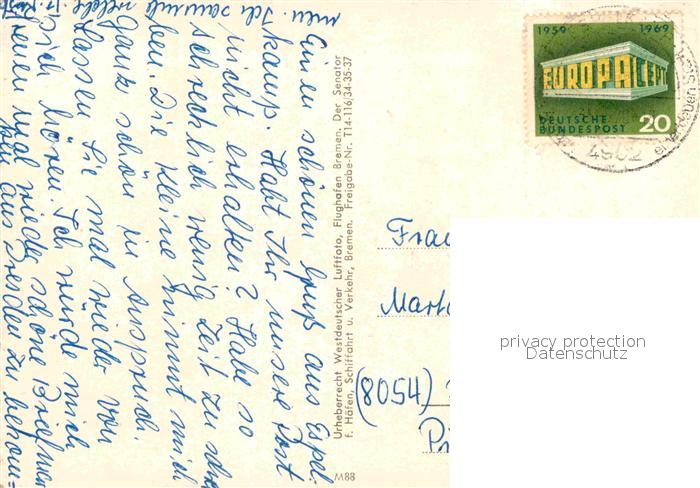 Einen schönen Gruß aus Espel-
kamp. Habt Ihr unsere Post
nicht erhalten? Habe so
schrecklich wenig Zeit zu schrei
ben. Die Kleine nimmt mich
ganz schön in Anspruch.
Lassen Sie mal wieder von
sich hören. Ich würde mich
freuen mal wieder schöne Briefmar
ken aus Dresden zu bekom=
men. Ich sammle
welche
Urheberrecht Westdeutscher Luftfoto, Flughafen Bremen. Der Senator
f. Häfen, Schiffahrt u. Verkehr, Bremen. Freigabe-Nr. T 14-116/34-35-37
M 88
1959 1969
EUROPA CEPT
DEUTSCHE
BUNDESPOST 20
4992
Frau
Marta
(8054)
privacy protection
Datenschutz